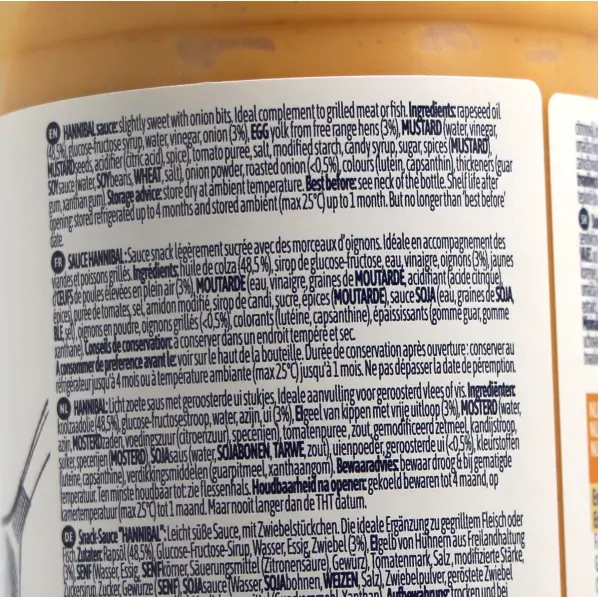 EN HANNIBAL sauce: slightly sweet with onion bits. Ideal complement to grilled meat or fish. Ingredients: rapeseed oil
(48,5%), glucose-fructose syrup, water, vinegar, onion (3%), EGG yolk from free range hens (3%), MUSTARD (water, vinegar,
MUSTARD seeds, acidifier (citric acid), spice), tomato puree, salt, modified starch, candy syrup, sugar, spices (MUSTARD),
SOY sauce (water, SOY beans, WHEAT, salt), onion powder, roasted onion (<0,5%), colours (lutein, capsanthin), thickeners (guar
gum, xanthan gum). Storage advice: store dry at ambient temperature. Best before: see neck of the bottle. Shelf life after
opening: stored refrigerated up to 4 months and stored ambient (max 25°C) up to 1 month. But no longer than 'best before'
date.
FR SAUCE HANNIBAL: Sauce snack légèrement sucrée avec des morceaux d'oignons. Idéale en accompagnement des
viandes et poissons grillés. Ingrédients: huile de colza (48,5 %), sirop de glucose-fructose, eau, vinaigre, oignons (3%), jaunes
d'ŒUFS de poules élevées en plein air (3%), MOUTARDE (eau, vinaigre, graines de MOUTARDE, acidifiant (acide citrique),
épices), purée de tomates, sel, amidon modifié, sirop de candi, sucre, épices (MOUTARDE), sauce SOJA (eau, graines de SOJA,
BLÉ, sel), oignons en poudre, oignons grillés (<0,5%), colorants (lutéine, capsanthine), épaississants (gomme guar, gomme
xanthane). Conseils de conservation: à conserver dans un endroit tempéré et sec.
A consommer de preference avant le: voir sur le haut de la bouteille. Durée de conservation après ouverture: conserver au
réfrigérateur jusqu'à 4 mois ou à température ambiante (max 25°C) jusqu'à 1 mois. Ne pas dépasser la date de péremption.
NL HANNIBAL: Licht zoete saus met geroosterde ui stukjes. Ideale aanvulling voor geroosterd vlees of vis. Ingrediënten:
koolzaadolie (48,5%), glucose-fructosestroop, water, azijn, ui (3%), Eigeel van kippen met vrije uitloop (3%), MOSTERD (water,
azijn, MOSTERDzaden, voedingszuur (citroenzuur), specerijen), tomatenpuree, zout, gemodificeerd zetmeel, kandijstroop,
suiker, specerijen (MOSTERD), SOJAsaus (water, SOJABONEN, TARWE, zout), uienpoeder, geroosterde ui (<0,5%), kleurstoffen
(luteïne, capsanthine), verdikkingsmiddelen (guarpitmeel, xanthaangom). Bewaaradvies: bewaar droog & bij gematigde
temperatuur. Ten minste houdbaar tot: zie flessenhals. Houdbaarheid na openen: gekoeld bewaren tot 4 maand, op
kamertemperatuur (max 25°C) tot 1 maand. Maar nooit langer dan de THT datum.
DE Snack-Sauce "HANNIBAL": Leicht süße Sauce, mit Zwiebelstückchen. Die ideale Ergänzung zu gegrilltem Fleisch oder
Fisch. Zutaten: Rapsöl (48,5%), Glucose-Fructose-Sirup, Wasser, Essig, Zwiebel (3%), Eigelb von Hühnern aus Freilandhaltung
(3%), SENF (Wasser, Essig, SENFkörner, Säuerungsmittel (Zitronensäure), Gewürz), Tomatenmark, Salz, modifizierte Stärke,
Zuckersirup, Zucker, Gewürze (SENF), SOJAsauce (Wasser, SOJAbohnen, WEIZEN, Salz), Zwiebelpulver, geröstete Zwiebel
Xanthan). Aufbewahrung: trocken und bei